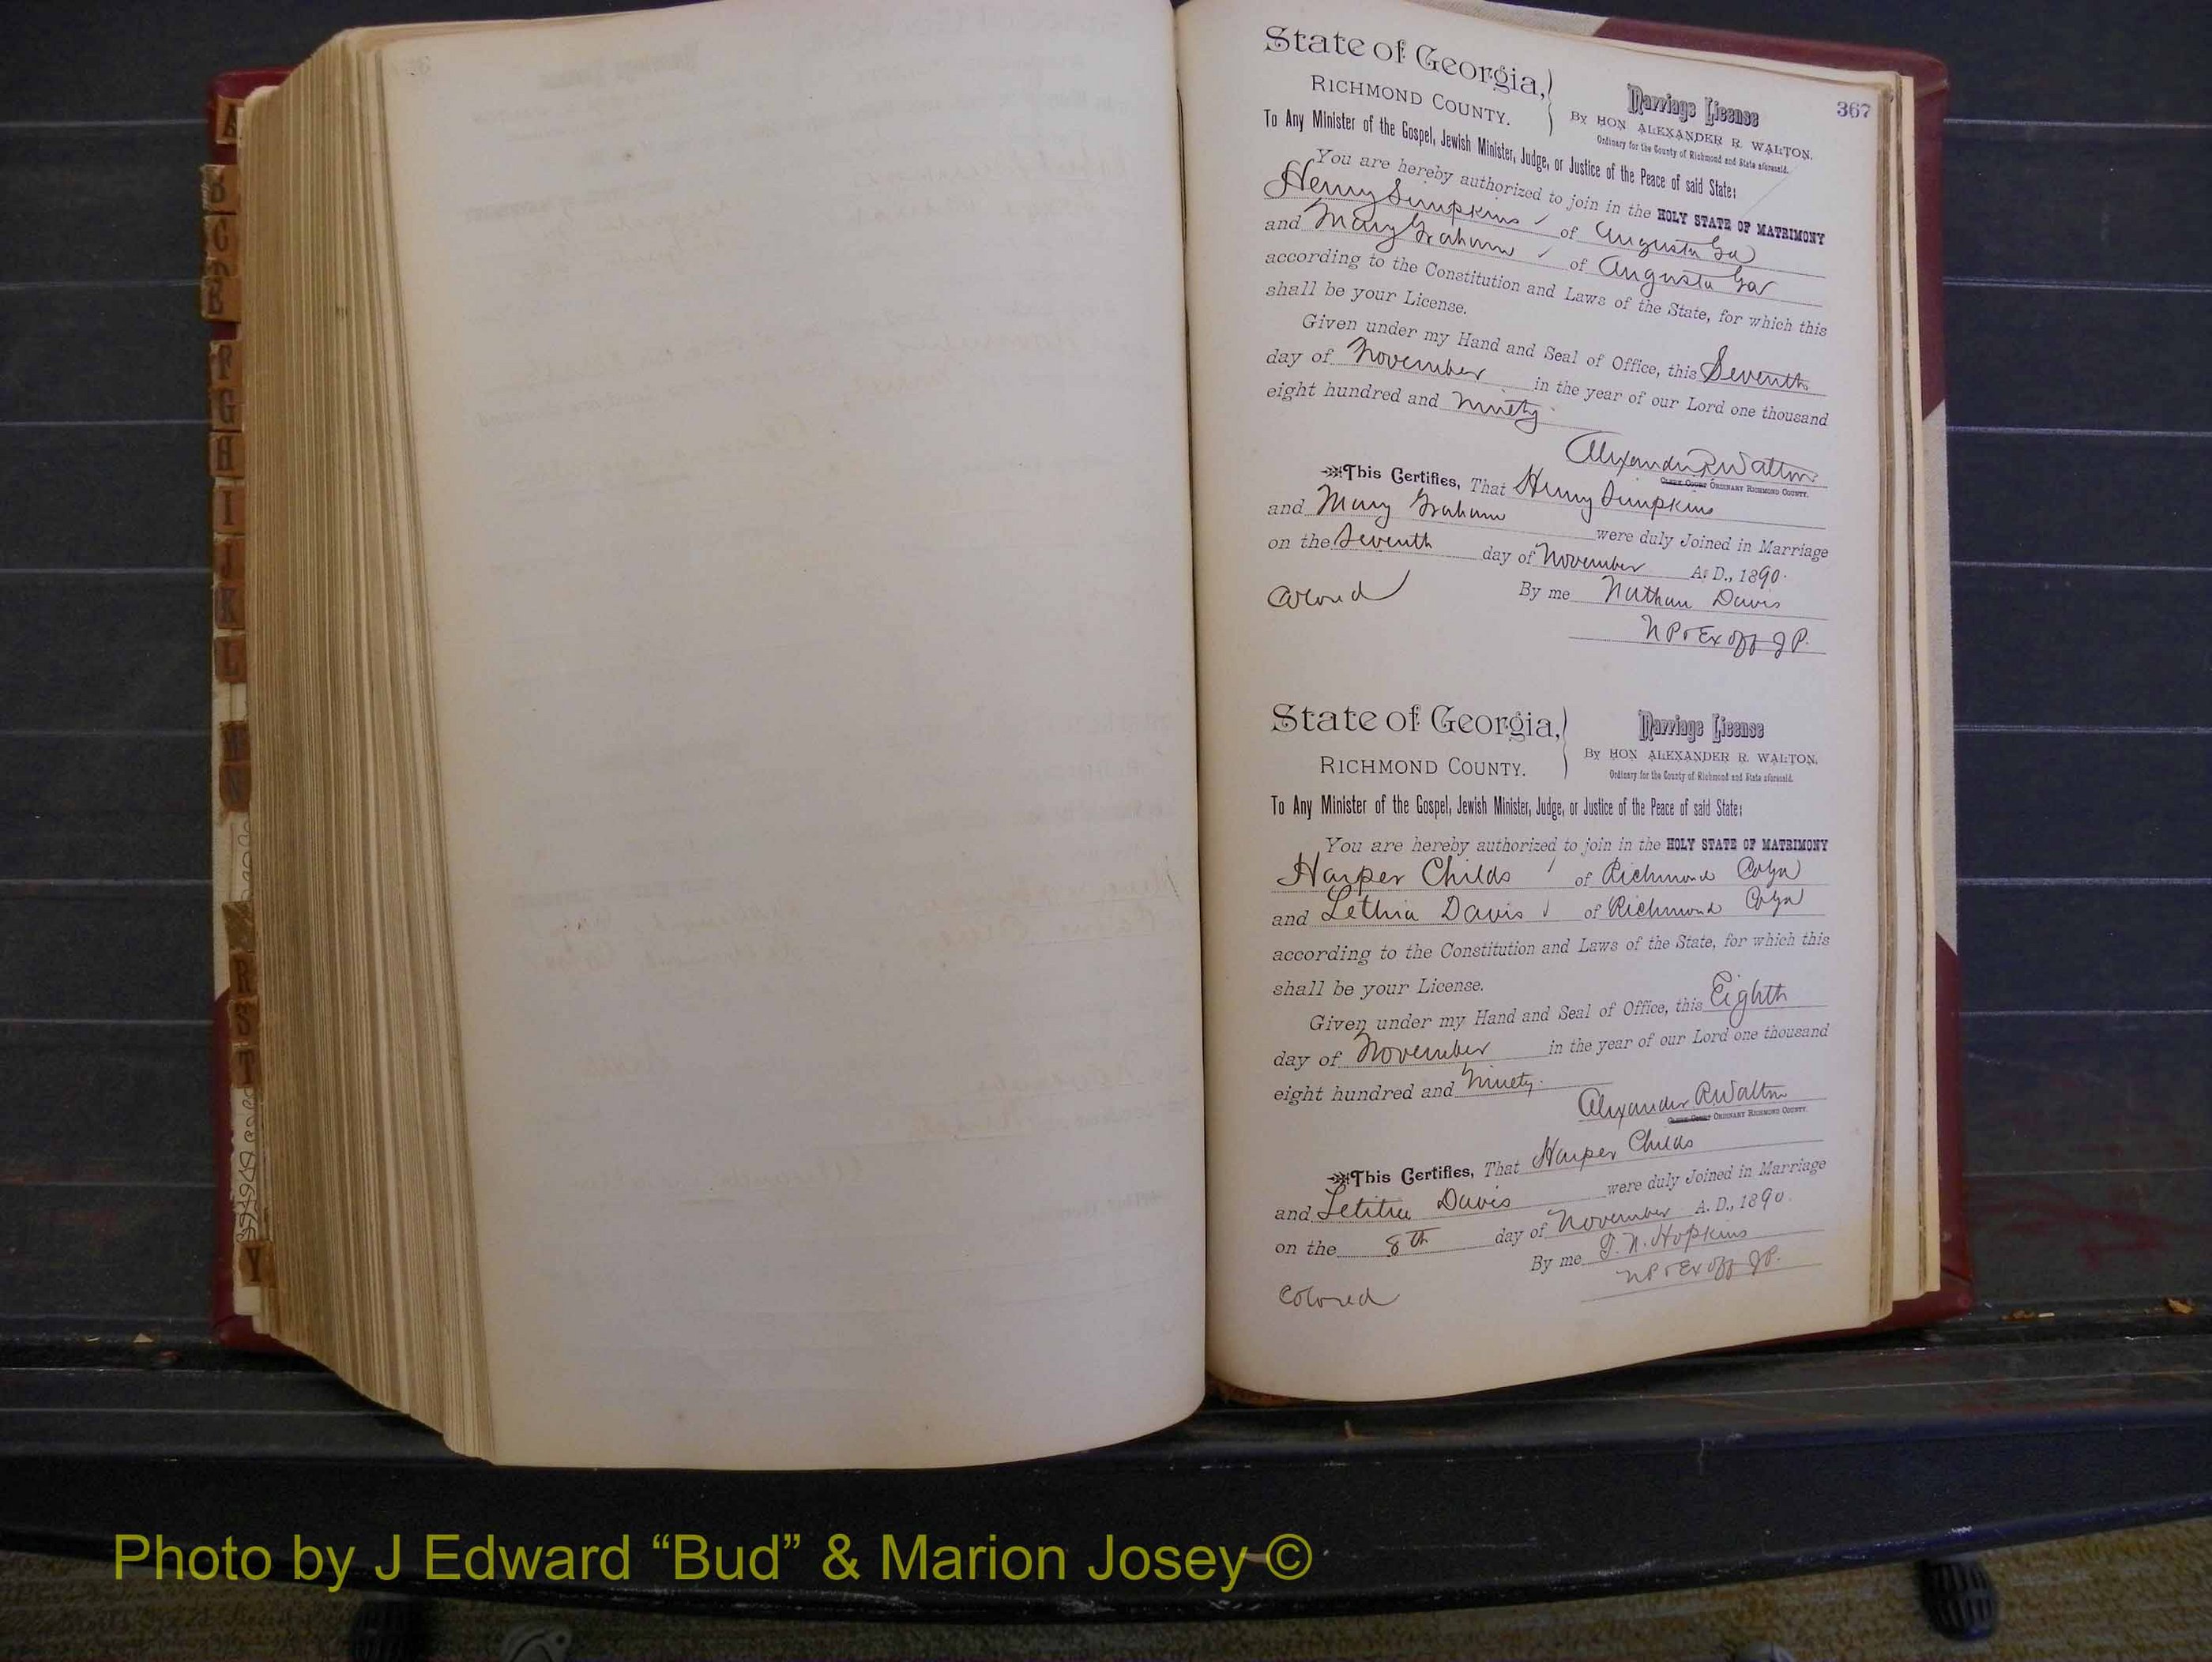 A
B
C
F
G
H
I
J
K
L
R
S
T
Y
367
State of Georgia,
RICHMOND COUNTY.
Marriage License
By HON ALEXANDER R. WALTON.
Ordinary for the County of Richmond and State aforesaid.
To Any Minister of the Gospel, Jewish Minister, Judge, or Justice of the Peace of said State:
You are hereby authorized to join in the HOLY STATE OF MATRIMONY
Henry Simpkins of Augusta Ga
and Mary Graham of Augusta Ga
according to the Constitution and Laws of the State, for which this
shall be your License.
Given under my Hand and Seal of Office, this Seventh
day of November in the year of our Lord one thousand
eight hundred and ninety.
Alexander R Walton
CLERK COURT ORDINARY RICHMOND COUNTY.
This Certifies, That Henry Simpkins
and Mary Graham were duly Joined in Marriage
on the Seventh day of November A. D., 1890.
By me Nathan Davis
Colored
NP & Ex Off JP.
State of Georgia,
RICHMOND COUNTY.
Marriage License
By HON ALEXANDER R. WALTON,
Ordinary for the County of Richmond and State aforesaid.
To Any Minister of the Gospel, Jewish Minister, Judge, or Justice of the Peace of said State:
You are hereby authorized to join in the HOLY STATE OF MATRIMONY
Harper Childs of Richmond Co Ga
and Lethia Davis of Richmond Co Ga
according to the Constitution and Laws of the State, for which this
shall be your License.
Given under my Hand and Seal of Office, this Eighth
day of November in the year of our Lord one thousand
eight hundred and Ninety.
Alexander R Walton
CLERK COURT ORDINARY RICHMOND COUNTY.
This Certifies, That Harper Childs
and Letitia Davis were duly Joined in Marriage
on the 8th day of November A. D., 1890.
By me T. N. Hopkins
NP & Ex Off JP.
Colored
Photo by J Edward “Bud” & Marion Josey ©